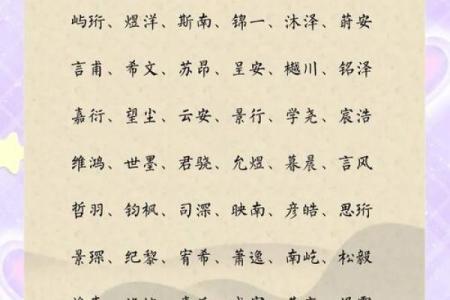 屿珩、煜洋、斯南、锦一、沐泽、蔚安
言甫、希文、苏昂、呈安、樾川、铭泽
嘉衍、望尘、云安、景行、学尧、宸浩
维鸿、世墨、君骁、允煜、暮晨、言风
哲羽、钧枫、司深、映南、彦皓、思珩
景琛、纪黎、宥希、萧逸、南屹、松毅